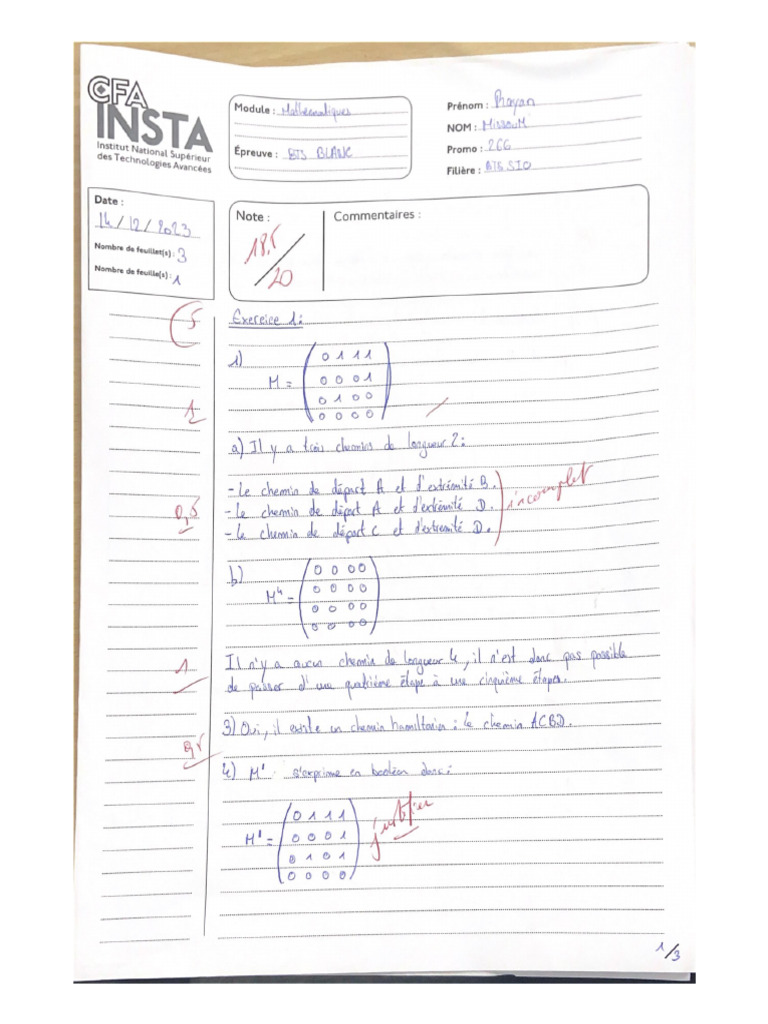 CFA
INSTA
Institut National Supérieur
des Technologies Avancées
Module : Mathématiques
Épreuve : BTS BLANC
Prénom : Rayan
NOM : Missoumi
Promo : 266
Filière : BTS SIO
Date :
14/12/2023
Nombre de feuillet(s) : 3
Nombre de feuille(s) : 1
Note :
18,5
/20
Commentaires :
5
Exercice 1 :
1)
M = ( 0 1 1 1
0 0 0 1
0 1 0 0
0 0 0 0 )
1
a) Il y a trois chemins de longueur 2 :
- Le chemin de départ A et d'extrémité B.
- Le chemin de départ A et d'extrémité D.
- Le chemin de départ C et d'extremité D.
incomplet
0,5
b)
M⁴ = ( 0 0 0 0
0 0 0 0
0 0 0 0
0 0 0 0 )
1
Il n'y a aucun chemin de longueur 4, il n'est donc pas possible
de passer d'une quatrième étape à une cinquième étape.
3) Oui, il existe un chemin hamiltonien : le chemin ACBD.
0,5
4) M' s'exprime en booléen donc :
M' = ( 0 1 1 1
0 0 0 1
0 1 0 1
0 0 0 0 )
justifier
1/3